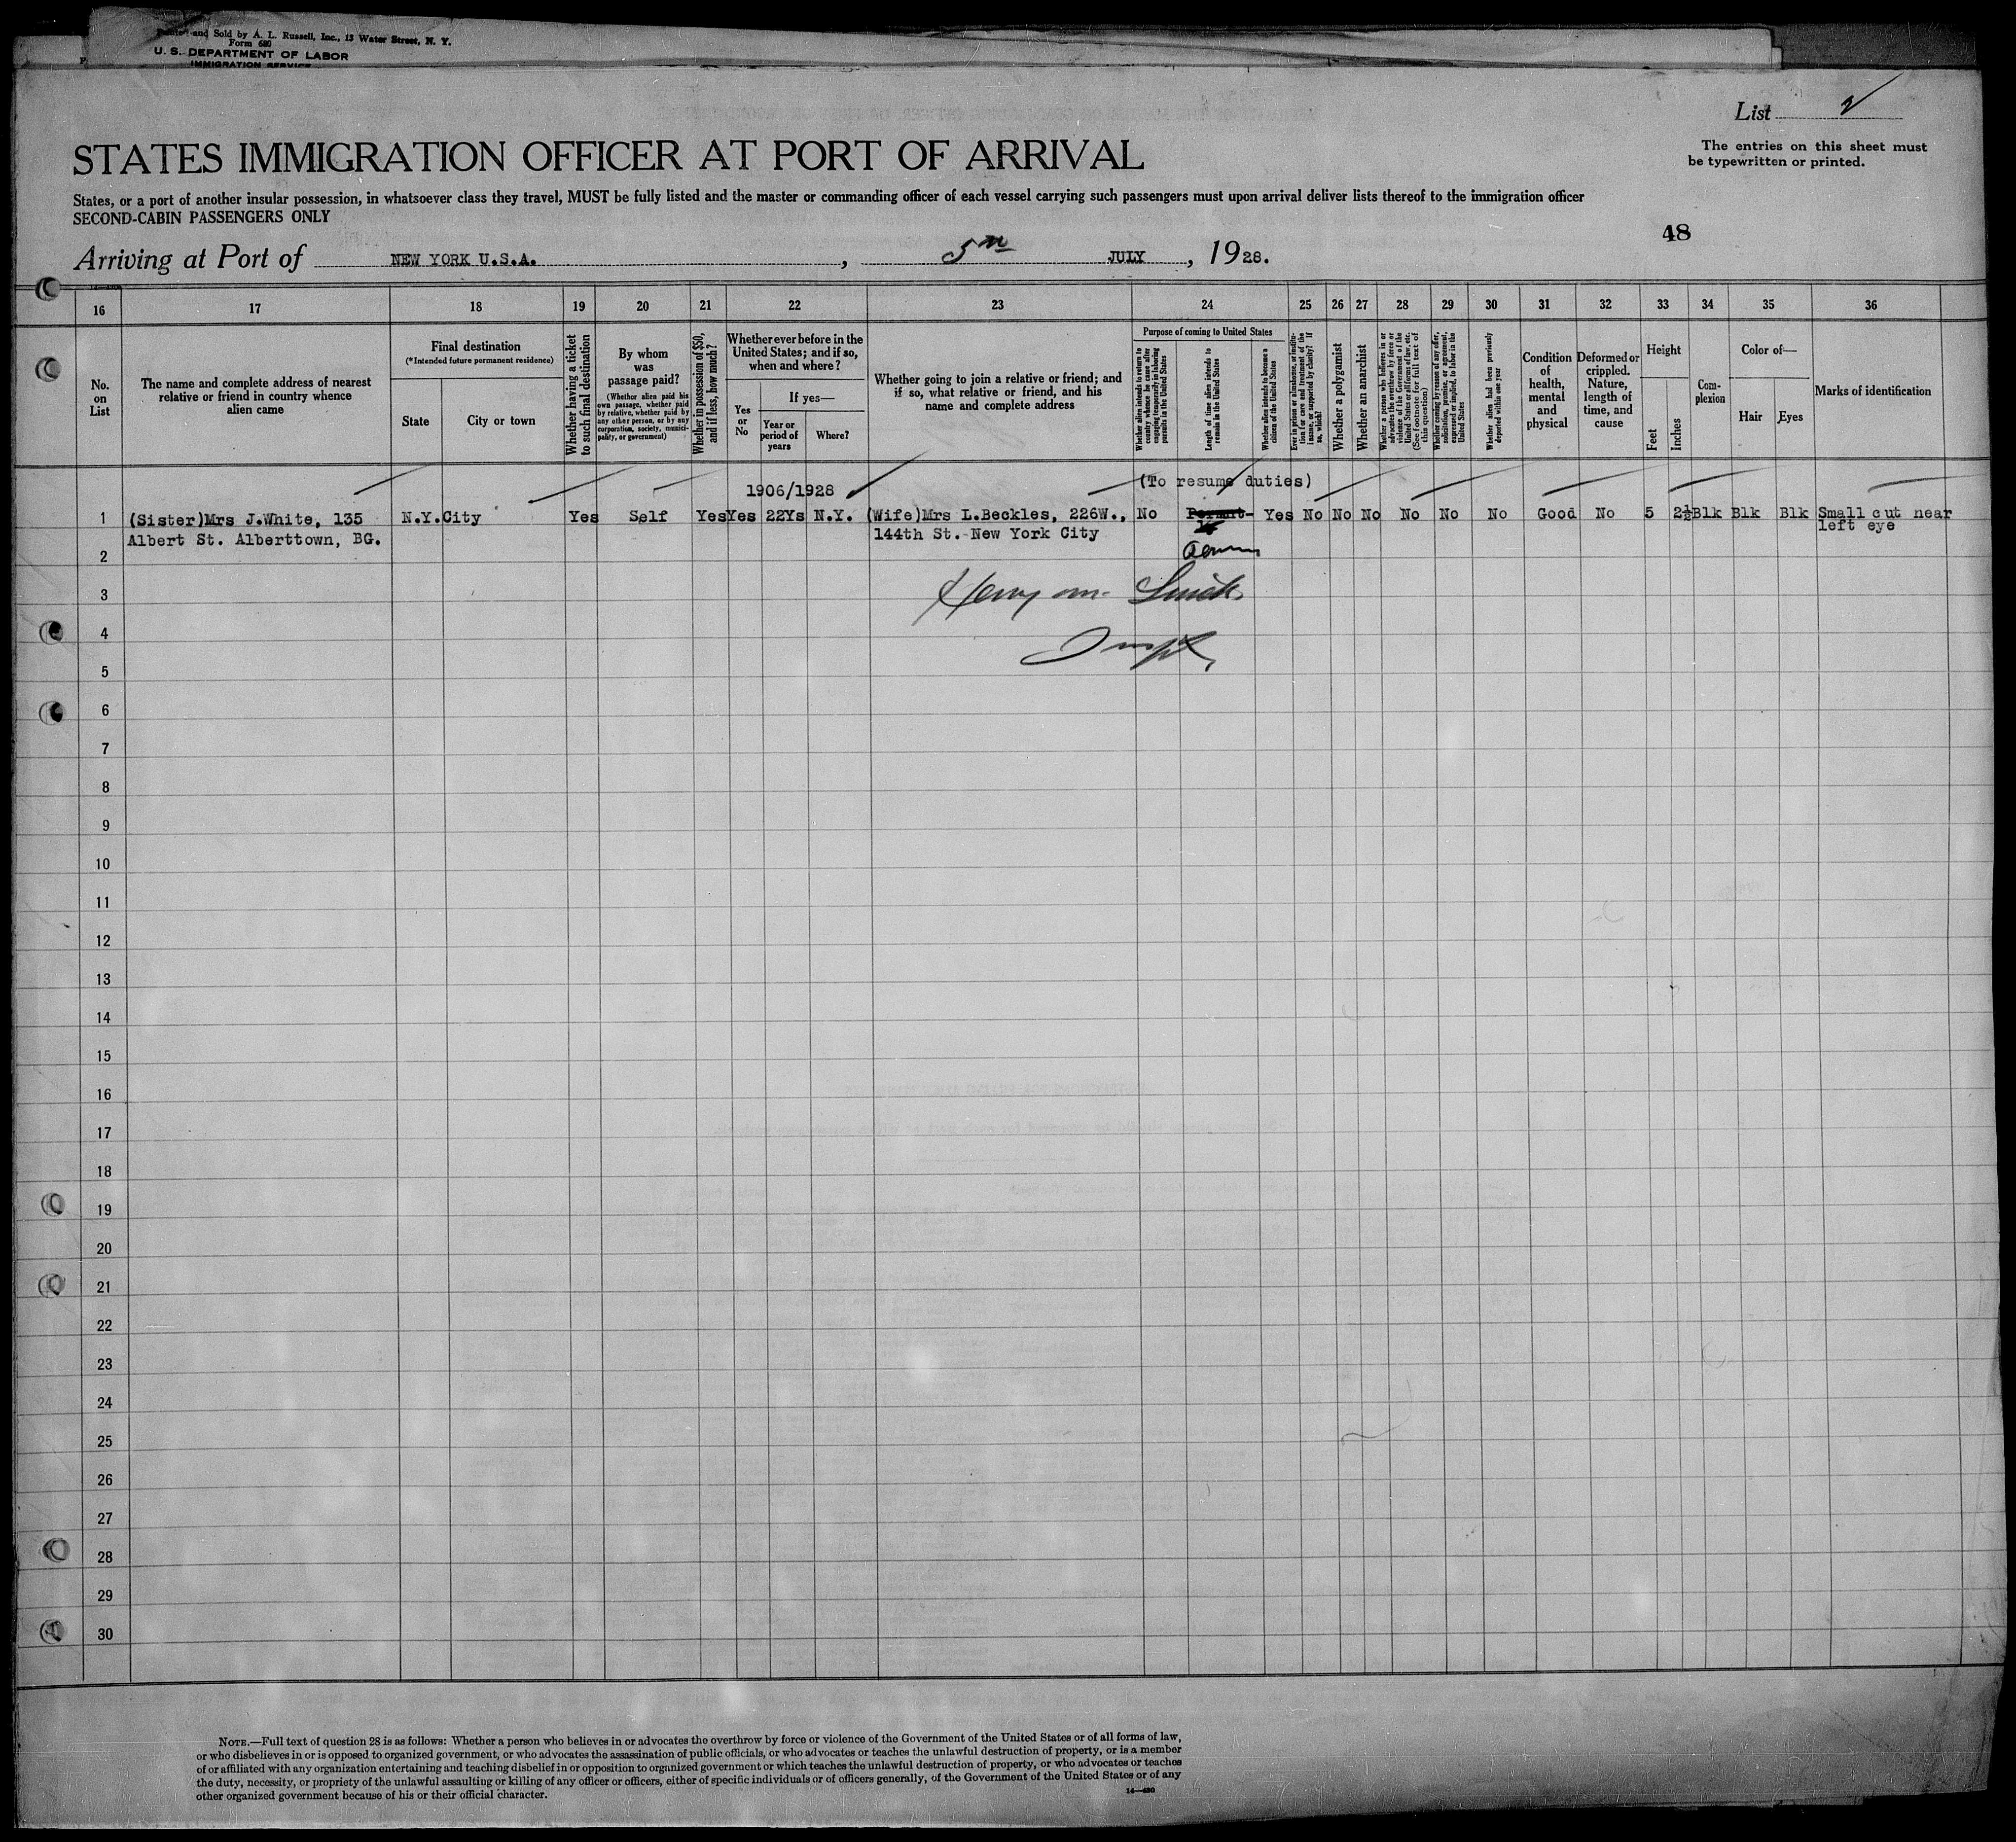 and Sold by A. L. Russell, Inc., 13 Water Street, N. Y.
Form 680
U. S. DEPARTMENT OF LABOR
IMMIGRATION SERVICE
List 2
The entries on this sheet must
be typewritten or printed.
STATES IMMIGRATION OFFICER AT PORT OF ARRIVAL
States, or a port of another insular possession, in whatsoever class they travel, MUST be fully listed and the master or commanding officer of each vessel carrying such passengers must upon arrival deliver lists thereof to the immigration officer
SECOND-CABIN PASSENGERS ONLY
48
Arriving at Port of NEW YORK U.S.A. , 5th JULY , 1928.
16 17 18 19 20 21 22 23 24 25 26 27 28 29 30 31 32 33 34 35 36
No. on List
The name and complete address of nearest
relative or friend in country whence
alien came
Final destination
(*Intended future permanent residence)
State
City or town
Whether having a ticket
to such final destination
By whom
was
passage paid?
(Whether alien paid his
own passage, whether paid
by relative, whether paid by
any other person, or by any
corporation, society, munici-
pality, or government)
Whether in possession of $50,
and if less, how much?
Whether ever before in the
United States; and if so,
when and where?
Yes
or
No
If yes—
Year or
period of
years
Where?
Whether going to join a relative or friend; and
if so, what relative or friend, and his
name and complete address
Purpose of coming to United States
Whether alien intends to return to
country whence he came after
engaging temporarily in laboring
pursuits in the United States
Length of time alien intends to
remain in the United States
Whether alien intends to become a
citizen of the United States
Ever in prison or almshouse, or institu-
tion for care and treatment of the
insane, or supported by charity? If
so, which?
Whether a polygamist
Whether an anarchist
Whether a person who believes in or
advocates the overthrow by force or
violence of the Government of the
United States or all forms of law, etc.
(See footnote for full text of
this question)
Whether coming by reason of any offer,
solicitation, promise, or agreement,
expressed or implied, to labor in the
United States
Whether alien had been previously
deported within one year
Condition
of
health,
mental
and
physical
Deformed or
crippled.
Nature,
length of
time, and
cause
Height
Feet
Inches
Com-
plexion
Color of—
Hair
Eyes
Marks of identification
1906/1928 (To resume duties)
1 (Sister)Mrs J.White, 135 N.Y. City Yes Self Yes Yes 22Ys N.Y. (Wife)Mrs L.Beckles, 226W., No Yes No No No No No No Good No 5 2½ Blk Blk Blk Small cut near
Albert St. Alberttown, BG. 144th St. New York City left eye
2
3
4
5
6
7
8
9
10
11
12
13
14
15
16
17
18
19
20
21
22
23
24
25
26
27
28
29
30
NOTE.—Full text of question 28 is as follows: Whether a person who believes in or advocates the overthrow by force or violence of the Government of the United States or of all forms of law,
or who disbelieves in or is opposed to organized government, or who advocates the assassination of public officials, or who advocates or teaches the unlawful destruction of property, or is a member
of or affiliated with any organization entertaining and teaching disbelief in or opposition to organized government or which teaches the unlawful destruction of property, or who advocates or teaches
the duty, necessity, or propriety of the unlawful assaulting or killing of any officer or officers, either of specific individuals or of officers generally, of the Government of the United States or of any
other organized government because of his or their official character.
14—430